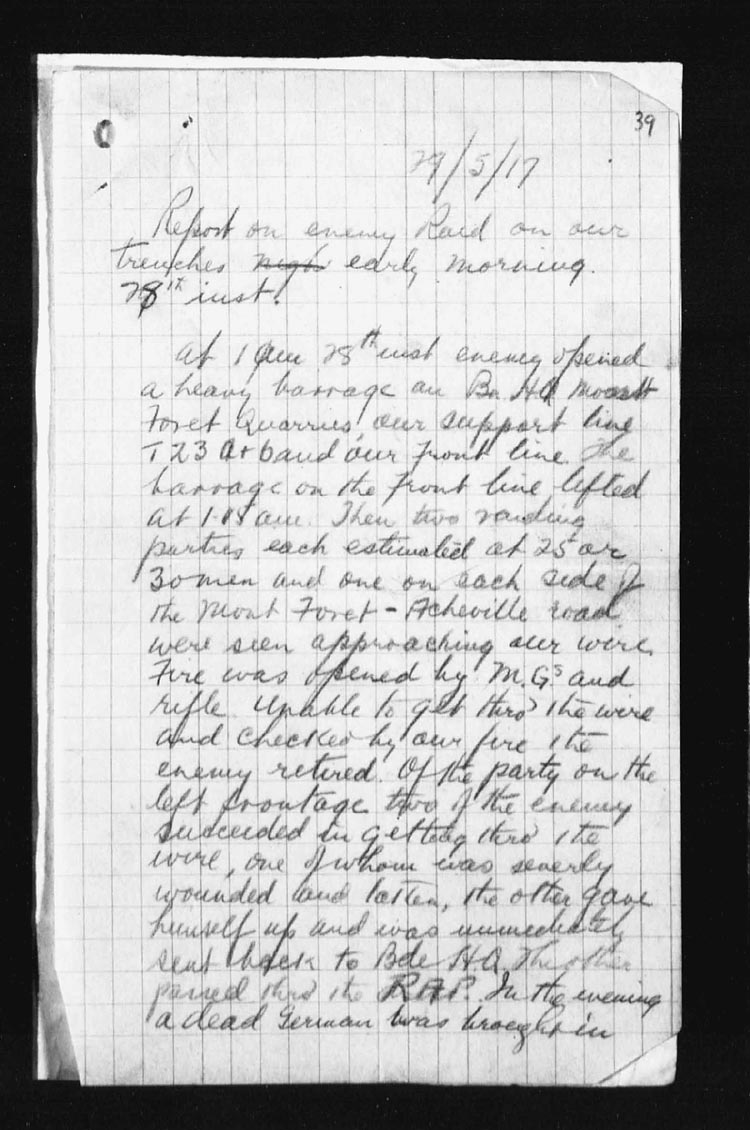 39
29/5/17
Report on enemy Raid on our
trenches early morning.
28th inst.
At 1 am 28th inst enemy opened
a heavy barrage on Bn HQ Mont
Foret Quarries, our support line
T 23 a + b and our front line. The
barrage on the front line lifted
at 1.15 am. Then two raiding
parties each estimated at 25 or
30 men and one on each side of
the Mont Foret - Acheville road
were seen approaching our wire.
Fire was opened by M.Gs and
rifle. Unable to get thro' the wire
and checked by our fire the
enemy retired. Of the party on the
left frontage two of the enemy
succeeded in getting thro' the
wire, one of whom was severly
wounded and taken, the other gave
himself up and was immediately
sent back to Bde HQ. The other
passed thro the R.A.P. In the evening
a dead German was brought in